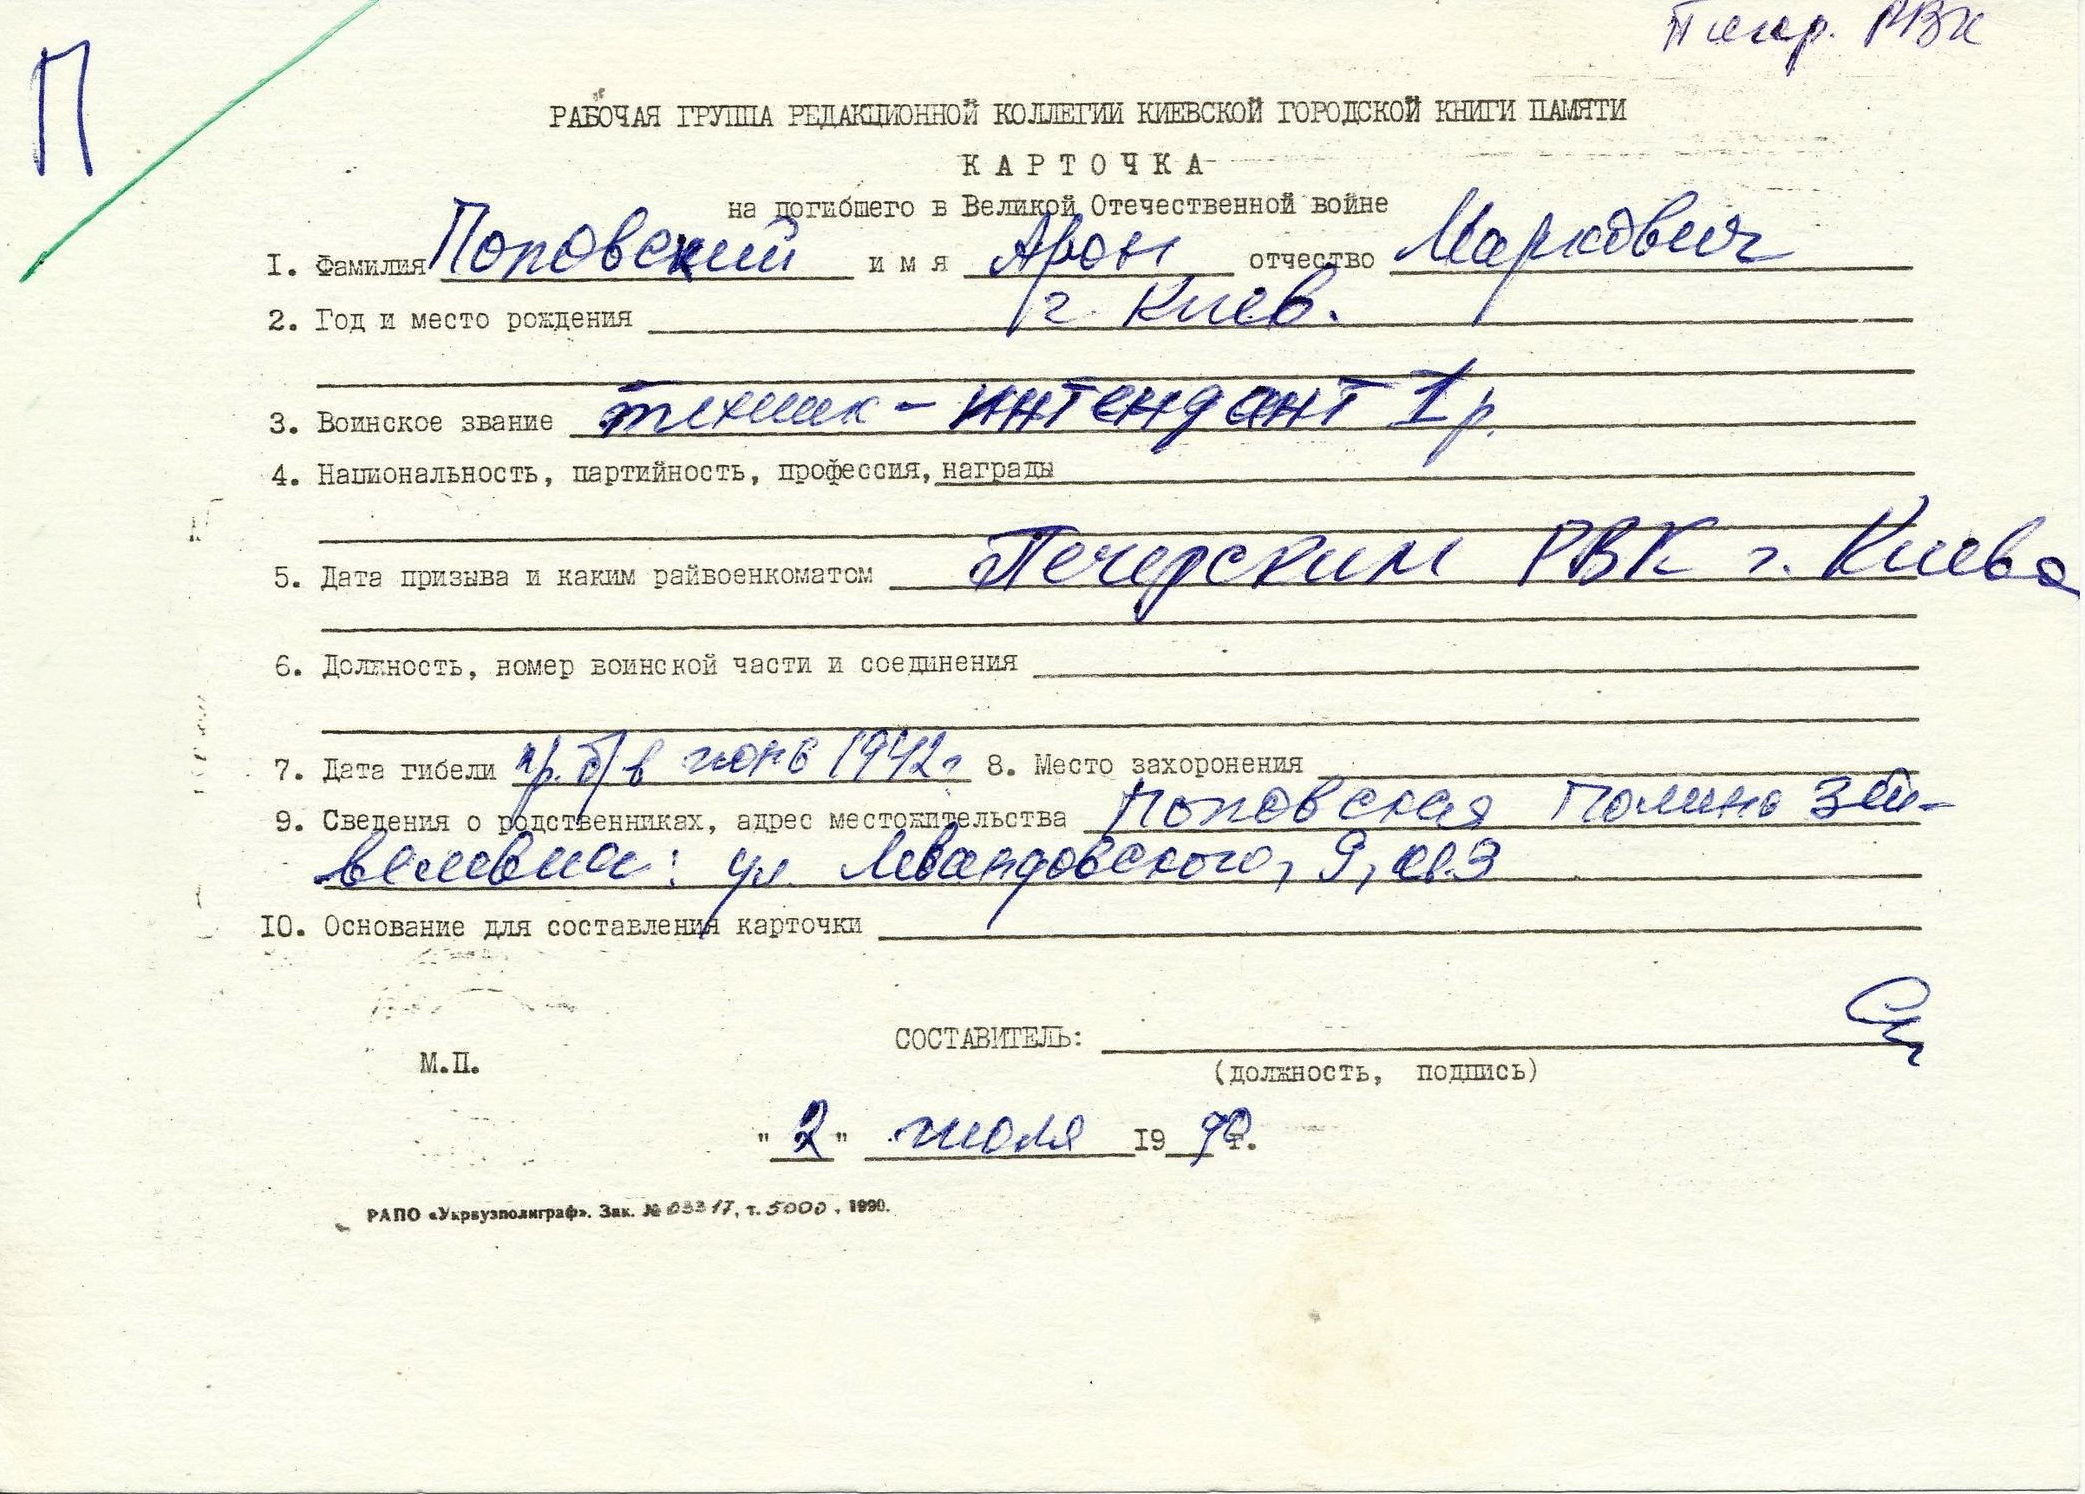 П
Печер. РВК
РАБОЧАЯ ГРУППА РЕДАКЦИОННОЙ КОЛЛЕГИИ КИЕВСКОЙ ГОРОДСКОЙ КНИГИ ПАМЯТИ
КАРТОЧКА
на погибшего в Великой Отечественной войне
I. Фамилия Поповский имя Арон отчество Маркович
2. Год и место рождения г. Киев.
3. Воинское звание техник-интендант 1 р.
4. Национальность, партийность, профессия, награды
5. Дата призыва и каким райвоенкоматом Печерским РВК г. Киева
6. Должность, номер воинской части и соединения
7. Дата гибели пр. б/в июнь 1942г 8. Место захоронения
9. Сведения о родственниках, адрес местожительства Поповская Полина Зей-
веловна: ул. Левандовского, 9, кв. 3
I0. Основание для составления карточки
СОСТАВИТЕЛЬ:
М.П.
(должность, подпись)
"2" июля 1990г.
РАПО «Укрвузполиграф». Зак. № 03317, т. 5000, 1990.